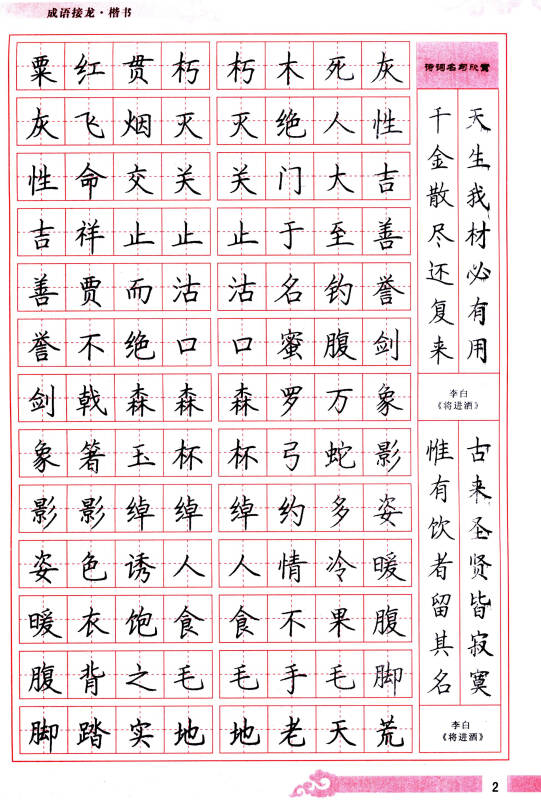 成语接龙·楷书
粟红贯朽 朽木死灰
灰飞烟灭 灭绝人性
性命交关 关门大吉
吉祥止止 止于至善
善贾而沽 沽名钓誉
誉不绝口 口蜜腹剑
剑戟森森 森罗万象
象箸玉杯 杯弓蛇影
影影绰绰 绰约多姿
姿色诱人 人情冷暖
暖衣饱食 食不果腹
腹背之毛 毛手毛脚
脚踏实地 地老天荒
诗词名句欣赏
天生我材必有用
千金散尽还复来
李白
《将进酒》
古来圣贤皆寂寞
惟有饮者留其名
李白
《将进酒》
2